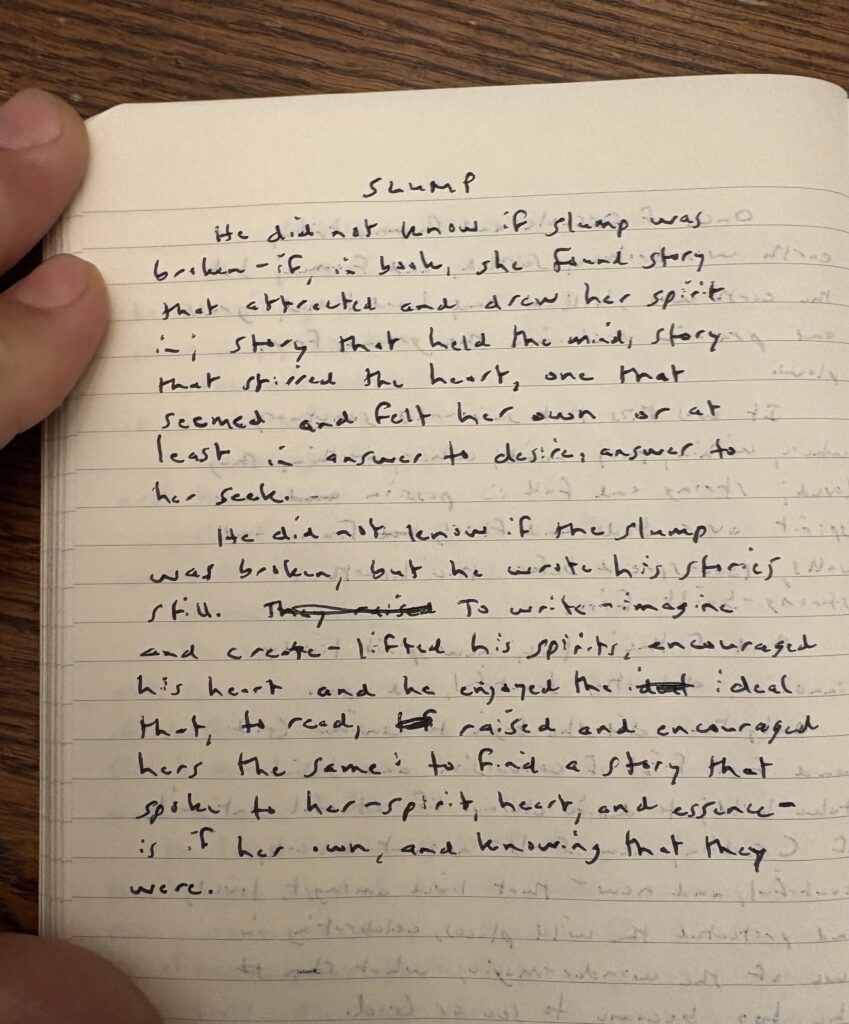 SLUMP
He did not know if slump was
broken-if, in book, she found story
that attracted and drew her spirit
in; story that held the mind, story
that stirred the heart, one that
seemed and felt her own or at
least in answer to desire, answer to
her seek.
He did not know if the slump
was broken, but he wrote his stories
still. They raised To write-imagine
and create-lifted his spirits, encouraged
his heart and he enjoyed the ideal
that, to read, raised and encouraged
hers the same: to find a story that
spoke to her-spirit, heart, and essence-
is if her own, and knowing that they
were.